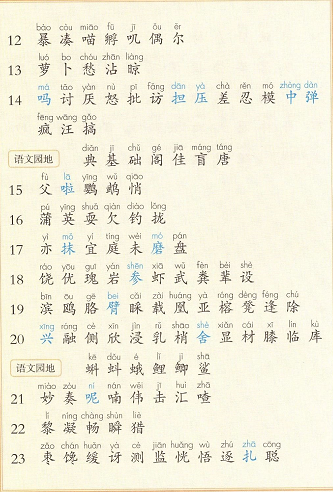 bào còu miāo fū jī ǒu ěr
12 暴 凑 喵 孵 叽 偶 尔
luó bo chóu zhān liàng
13 萝 卜 愁 沾 晾
má tǎo yàn nù pī fǎng dān yā chà rěn mó zhòng dàn
14 吗 讨 厌 怒 批 访 担 压 差 忍 模 中 弹
fēng wāng gǎo
疯 汪 搞
diǎn jī chǔ gé jiā máng táng
语文园地 典 基 础 阁 佳 盲 唐
fù lā yīng wǔ qiāo
15 父 啦 鹦 鹉 悄
pú yīng shuǎ qiàn diào lǒng
16 蒲 英 耍 欠 钓 拢
yì mǒ yí tíng wèi mò pán
17 亦 抹 宜 庭 未 磨 盘
ráo yōu guī yán shēn xiā wǔ fèn bèi shè
18 饶 优 瑰 岩 参 虾 武 粪 辈 设
bīn ōu gē bei cǎi zǎi huáng yà róng dèng féng chú
19 滨 鸥 胳 臂 睬 载 凰 亚 榕 凳 逢 除
xīng róng cè xīn jìn rǔ shāo shè xiǎn cái xī lín kù
20 兴 融 侧 欣 浸 乳 梢 舍 显 材 膝 临 库
kē dǒu é lǐ jì shā
语文园地 蝌 蚪 蛾 鲤 鲫 鲨
miào zòu ní nán wěi jī huì zhā
21 妙 奏 呢 喃 伟 击 汇 喳
lí níng chàng shùn liè
22 黎 凝 畅 瞬 猎
zǎo chán huǎn yà cè jiān huǎng wù zhú zhā cōng
23 枣 馋 缓 讶 测 监 恍 悟 逐 扎 聪